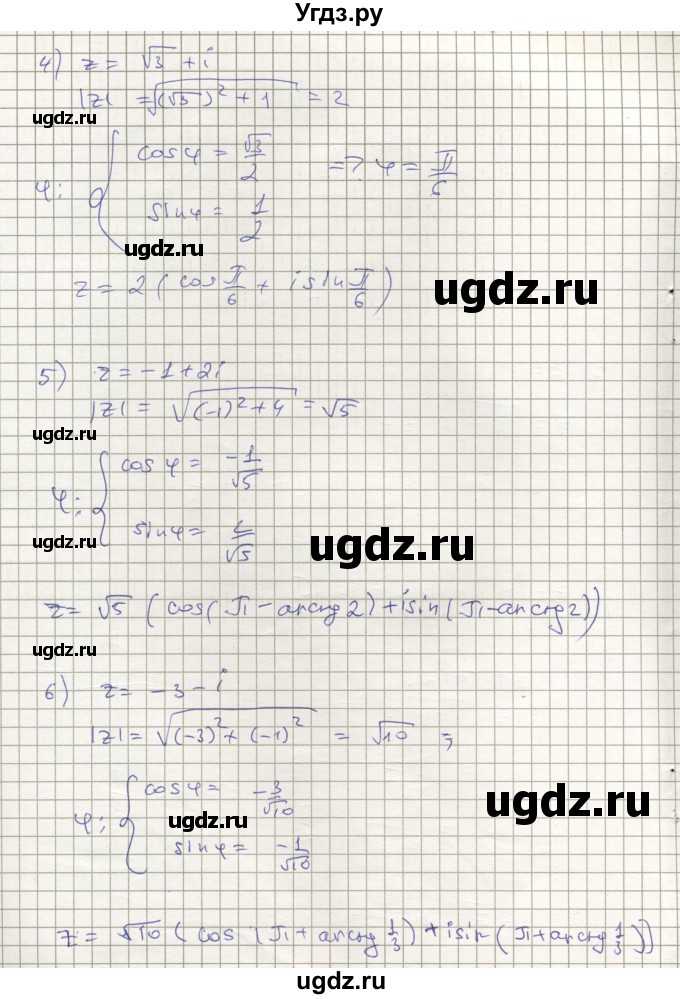 Угдз.ру
4) z = √3 + i
|z| = √((√3)² + 1) = 2
ugdz.ru
φ: { cos φ = √3/2 => φ = π/6
sin φ = 1/2
ugdz.ru
z = 2 (cos π/6 + i sin π/6)
ugdz.ru
5) z = -1 + 2i
|z| = √((-1)² + 4) = √5
ugdz.ru
φ: { cos φ = -1/√5
sin φ = 2/√5
ugdz.ru
ugdz.ru
z = √5 (cos(π - arctg 2) + i sin(π - arctg 2))
ugdz.ru
6) z = -3 - i
|z| = √((-3)² + (-1)²) = √10 ;
φ: { cos φ = -3/√10
ugdz.ru
ugdz.ru
sin φ = -1/√10
z = √10 (cos (π + arctg 1/3) + i sin (π + arctg 1/3))
ugdz.ru